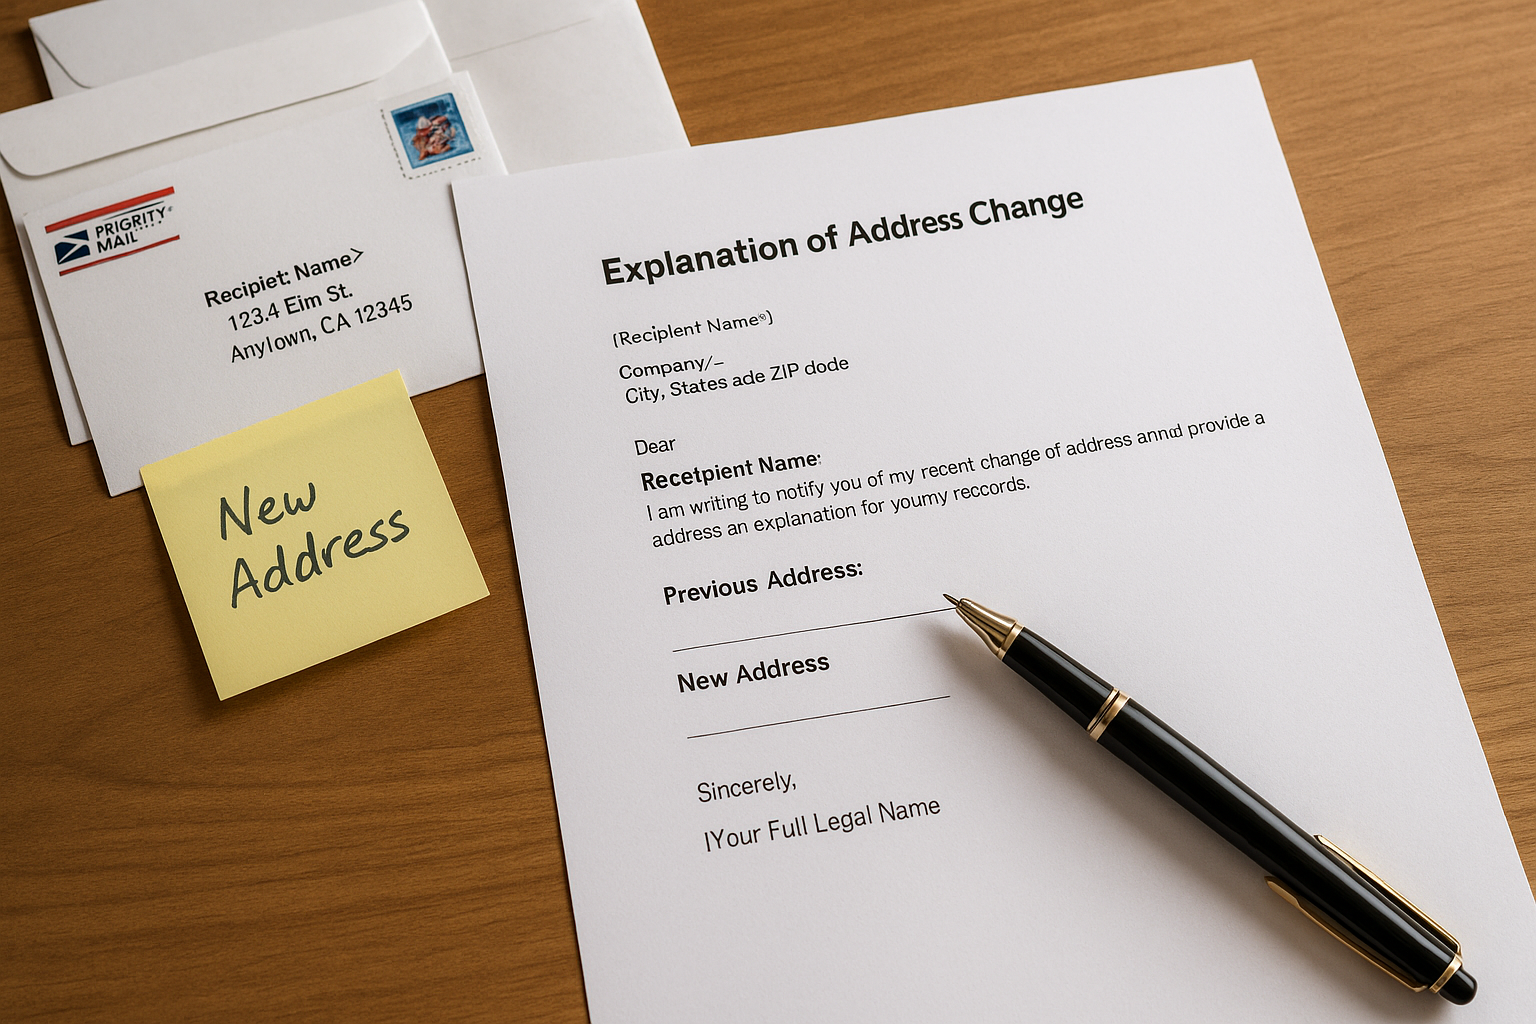 PRIGRITY
MAIL
Recipiet: Name>
123.4 Eim St.
Anylown, CA 12345
New
Address
Explanation of Address Change
(Reciplent Name®)
Company/–
City, States ade ZIP dode
Dear
Recetpient Name:
I am writing to notify you of my recent change of address annd provide a
address an explanation for youmy reccords.
Previous Address:
New Address
Sincerely,
IYour Full Legal Name